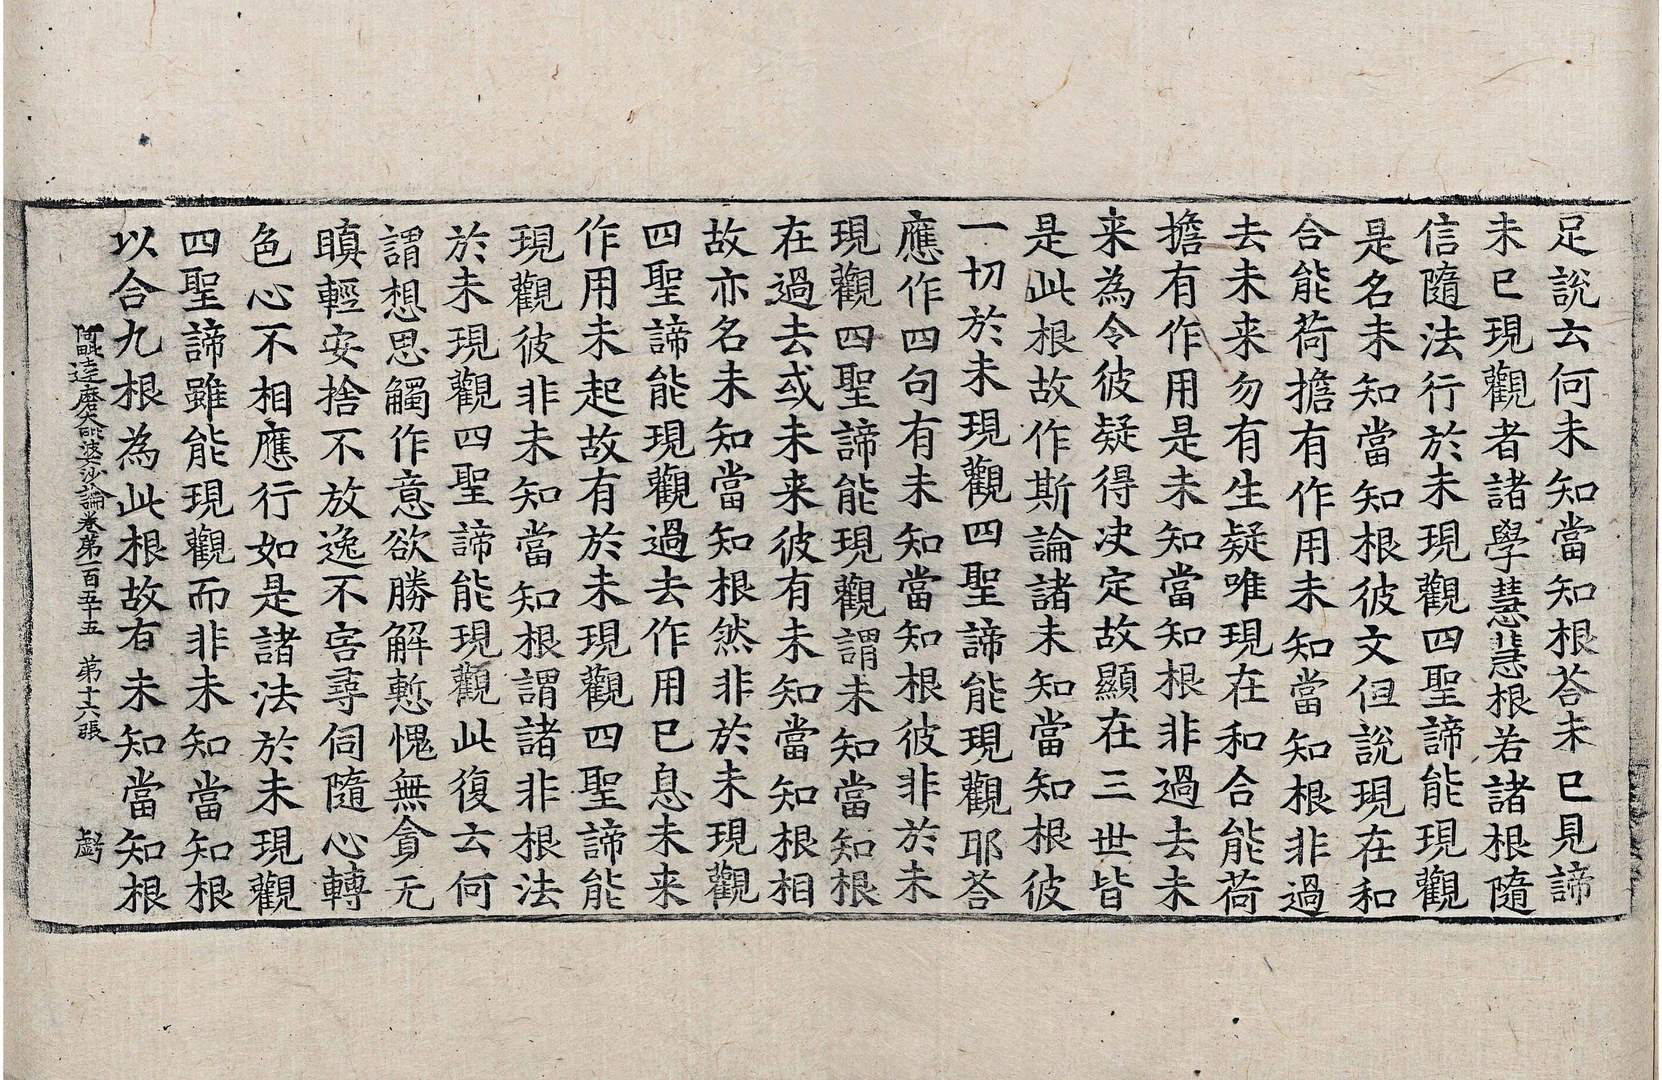 足說云何未知當知根荅未已見諦
未已現觀者諸學慧慧根若諸根隨
信隨法行於未現觀四聖諦能現觀
是名未知當知根彼文但說現在和
合能荷擔有作用未知當知根非過
去未来勿有生疑唯現在和合能荷
擔有作用是未知當知根非過去未
来為令彼疑得決定故顯在三世皆
是此根故作斯論諸未知當知根彼
一切於未現觀四聖諦能現觀耶荅
應作四句有未知當知根彼非於未
現觀四聖諦能現觀謂未知當知根
在過去或未来彼有未知當知根相
故亦名未知當知根然非於未現觀
四聖諦能現觀過去作用已息未来
作用未起故有於未現觀四聖諦能
現觀彼非未知當知根謂諸非根法
於未現觀四聖諦能現觀此復云何
謂想思觸作意欲勝解慙愧無貪无
瞋輕安捨不放逸不害尋伺隨心轉
色心不相應行如是諸法於未現觀
四聖諦雖能現觀而非未知當知根
以合九根為此根故有未知當知根
阿毗達磨大毗婆沙論卷第一百四十五　第十六張　虧